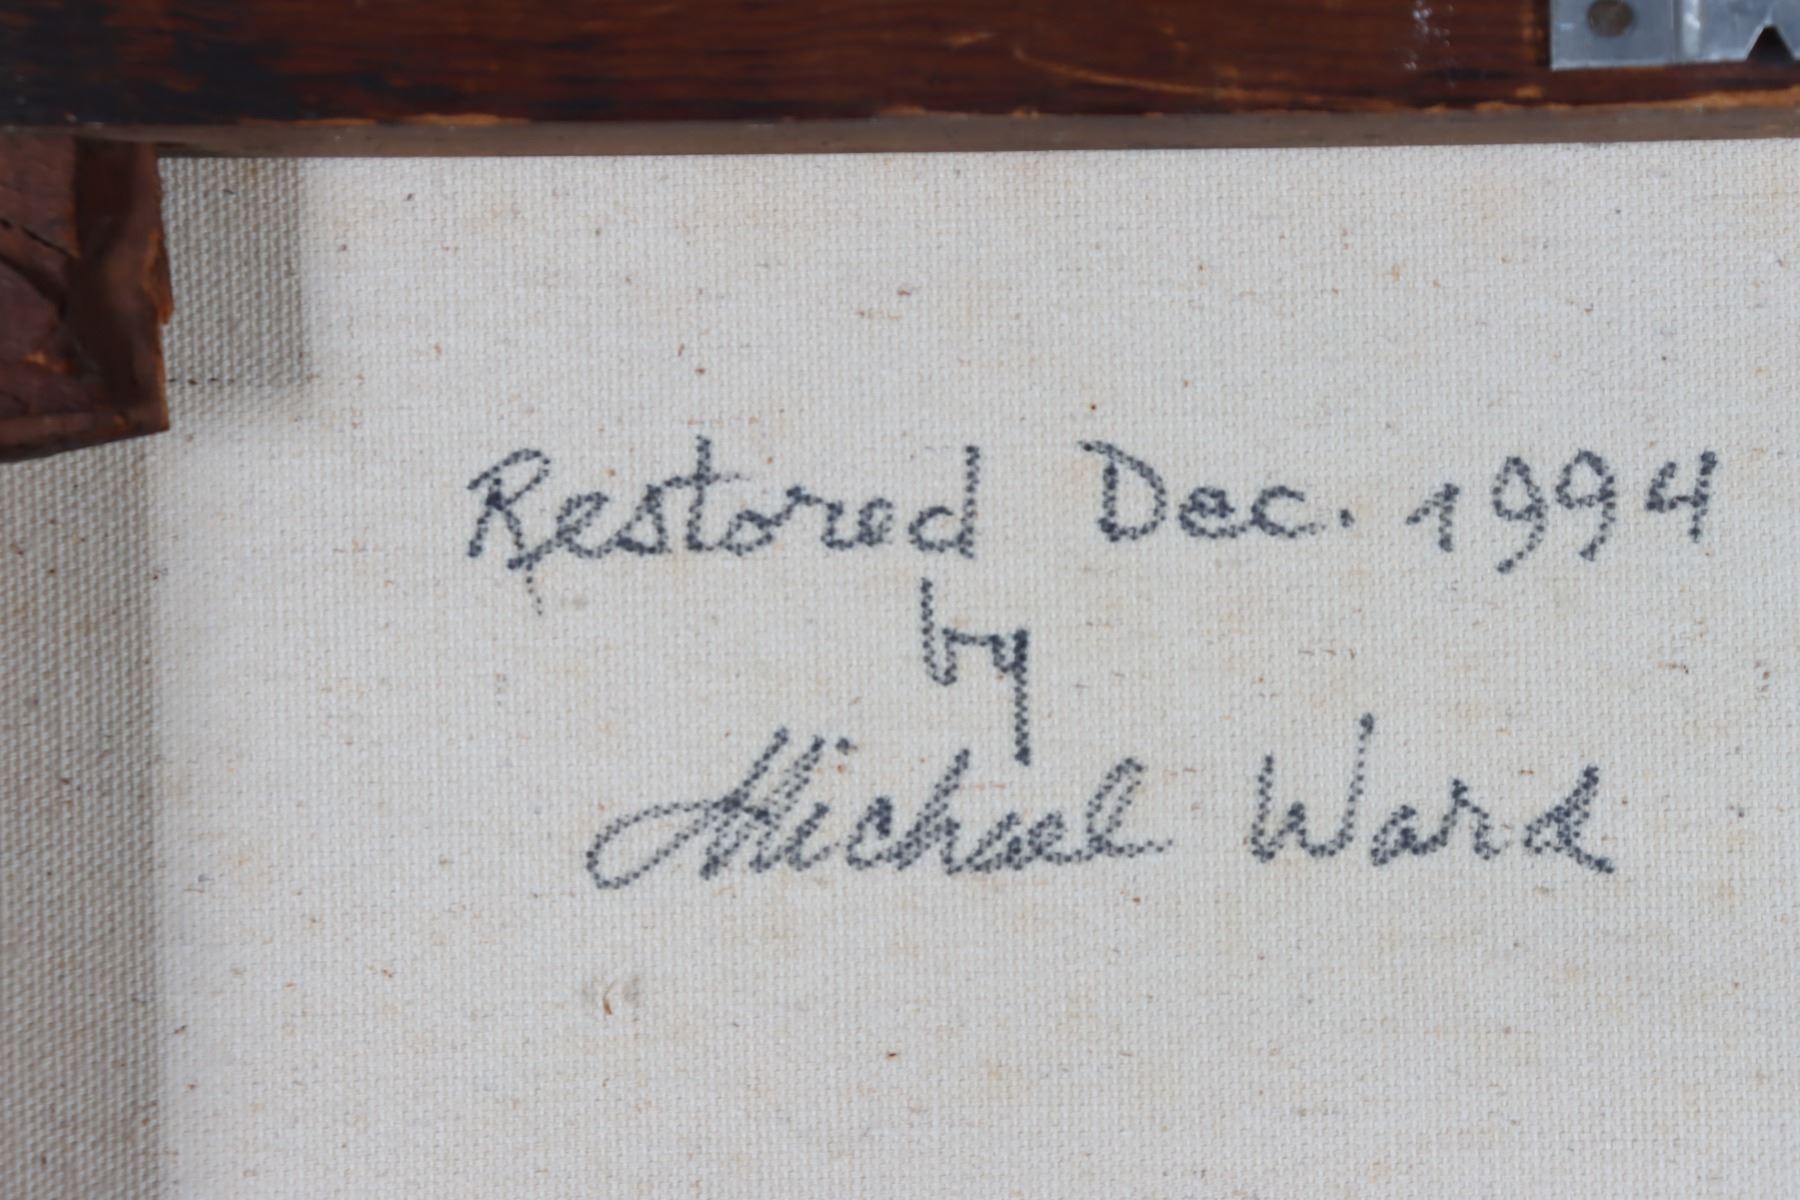 Restored Dec. 1994
by
Michael Ward